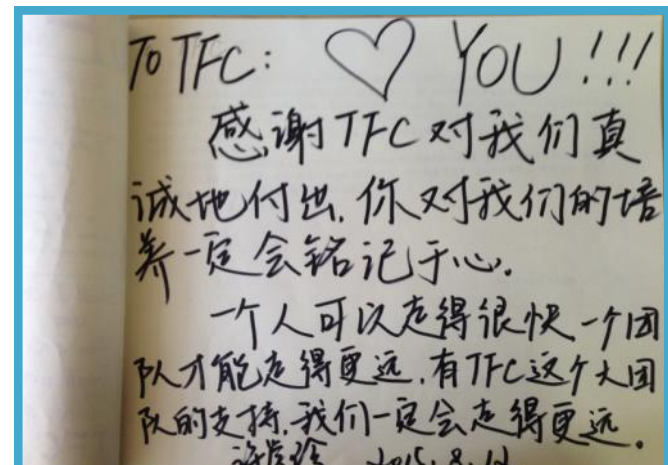 TO TFC: ♡ YOU!!!
感谢TFC对我们真
诚地付出.你对我们的培
养一定会铭记于心.
一个人可以走得很快一个团
队才能走得更远.有TFC这个大团
队的支持.我们一定会走得更远。
2015.8.12